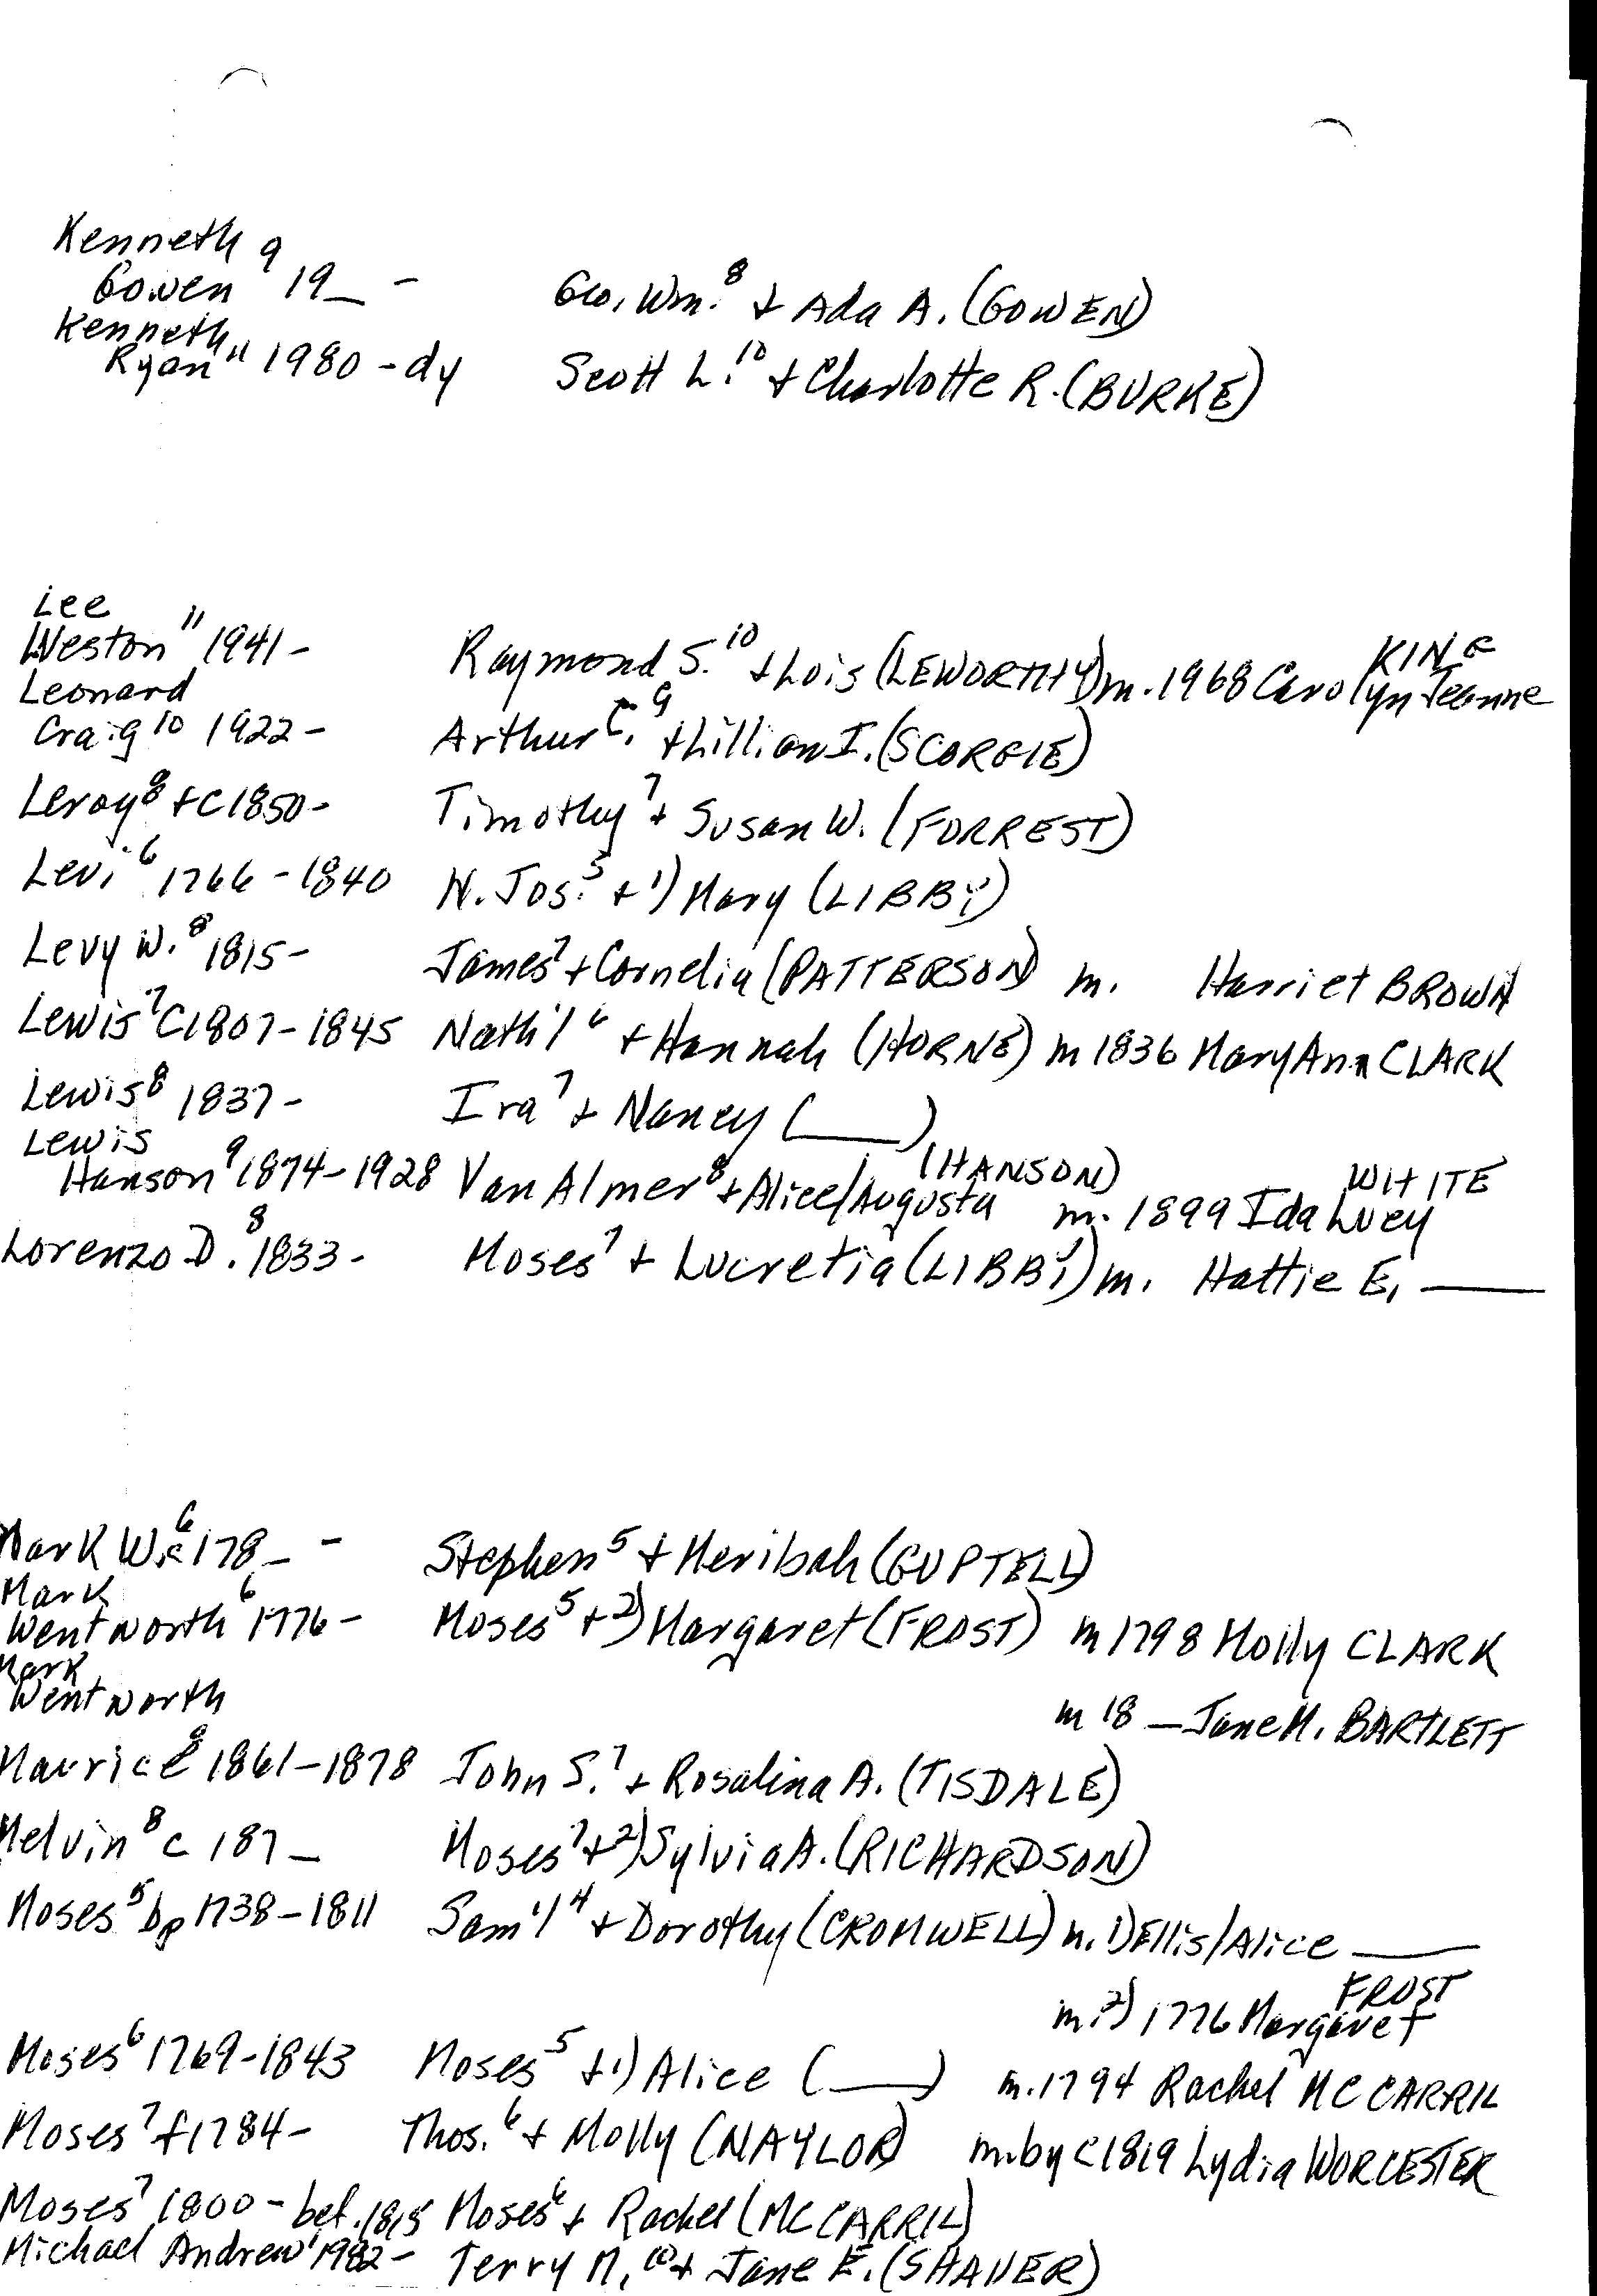 Kenneth 9
Gowen 19_ - Geo. Wm.8 + Ada A. (GOWEN)
Kenneth
Ryan 11 1980 - dy Scott L.10 + Charlotte R. (BURKE)
Lee
Weston 11 1941 - Raymond S.10 + Lois (LEWORTHY) m. 1968 Carolyn Jeanne KING
Leonard
Craig 10 1922 - Arthur C.9 + Lillian I. (SCORGIE)
Leroy8 +c1850 - Timothy7 + Susan W. (FORREST)
Levi6 1766 - 1840 N. Jos.5 + 1) Mary (LIBBY)
Levy W.8 1815 - James7 + Cornelia (PATTERSON) m. Harriet BROWN
Lewis7 C1807 - 1845 Nath'l6 + Hannah (HORNE) m 1836 Mary Ann CLARK
Lewis8 1837 - Ira7 + Nancy (____)
Lewis
Hanson9 1874 - 1928 Van Almer8 + Alice/Augusta (HANSON) m. 1899 Ida Lucy WHITE
Lorenzo D.8 1833 - Moses7 + Lucretia (LIBBY) m. Hattie E. ____
Mark W.6 c178_ - Stephen5 + Meribah (GUPTELL)
Mark
Wentworth6 1776 - Moses5 + 2) Margaret (FROST) m 1798 Molly CLARK
Mark
Wentworth m 18 — Jane M. BARTLETT
Maurice8 1861 - 1878 John S.7 + Rosalina A. (TISDALE)
Melvin8 c 187_ Moses7 + 2) Sylvia A. (RICHARDSON)
Moses5 bp 1738 - 1811 Sam'l4 + Dorothy (CROMWELL) m. 1) Ellis/Alice ____
m. 2) 1776 Margaret FROST
Moses6 1769 - 1843 Moses5 + 1) Alice (____) m. 1794 Rachel MCCARRIL
Moses7 +1784 - Thos.6 + Molly (NAYLOR) m. by c1819 Lydia WORCESTER
Moses7 1800 - bef. 1815 Moses6 + Rachel (MCCARRIL)
Michael Andrew 1982 - Terry M.10 + Jane E. (SHAVER)